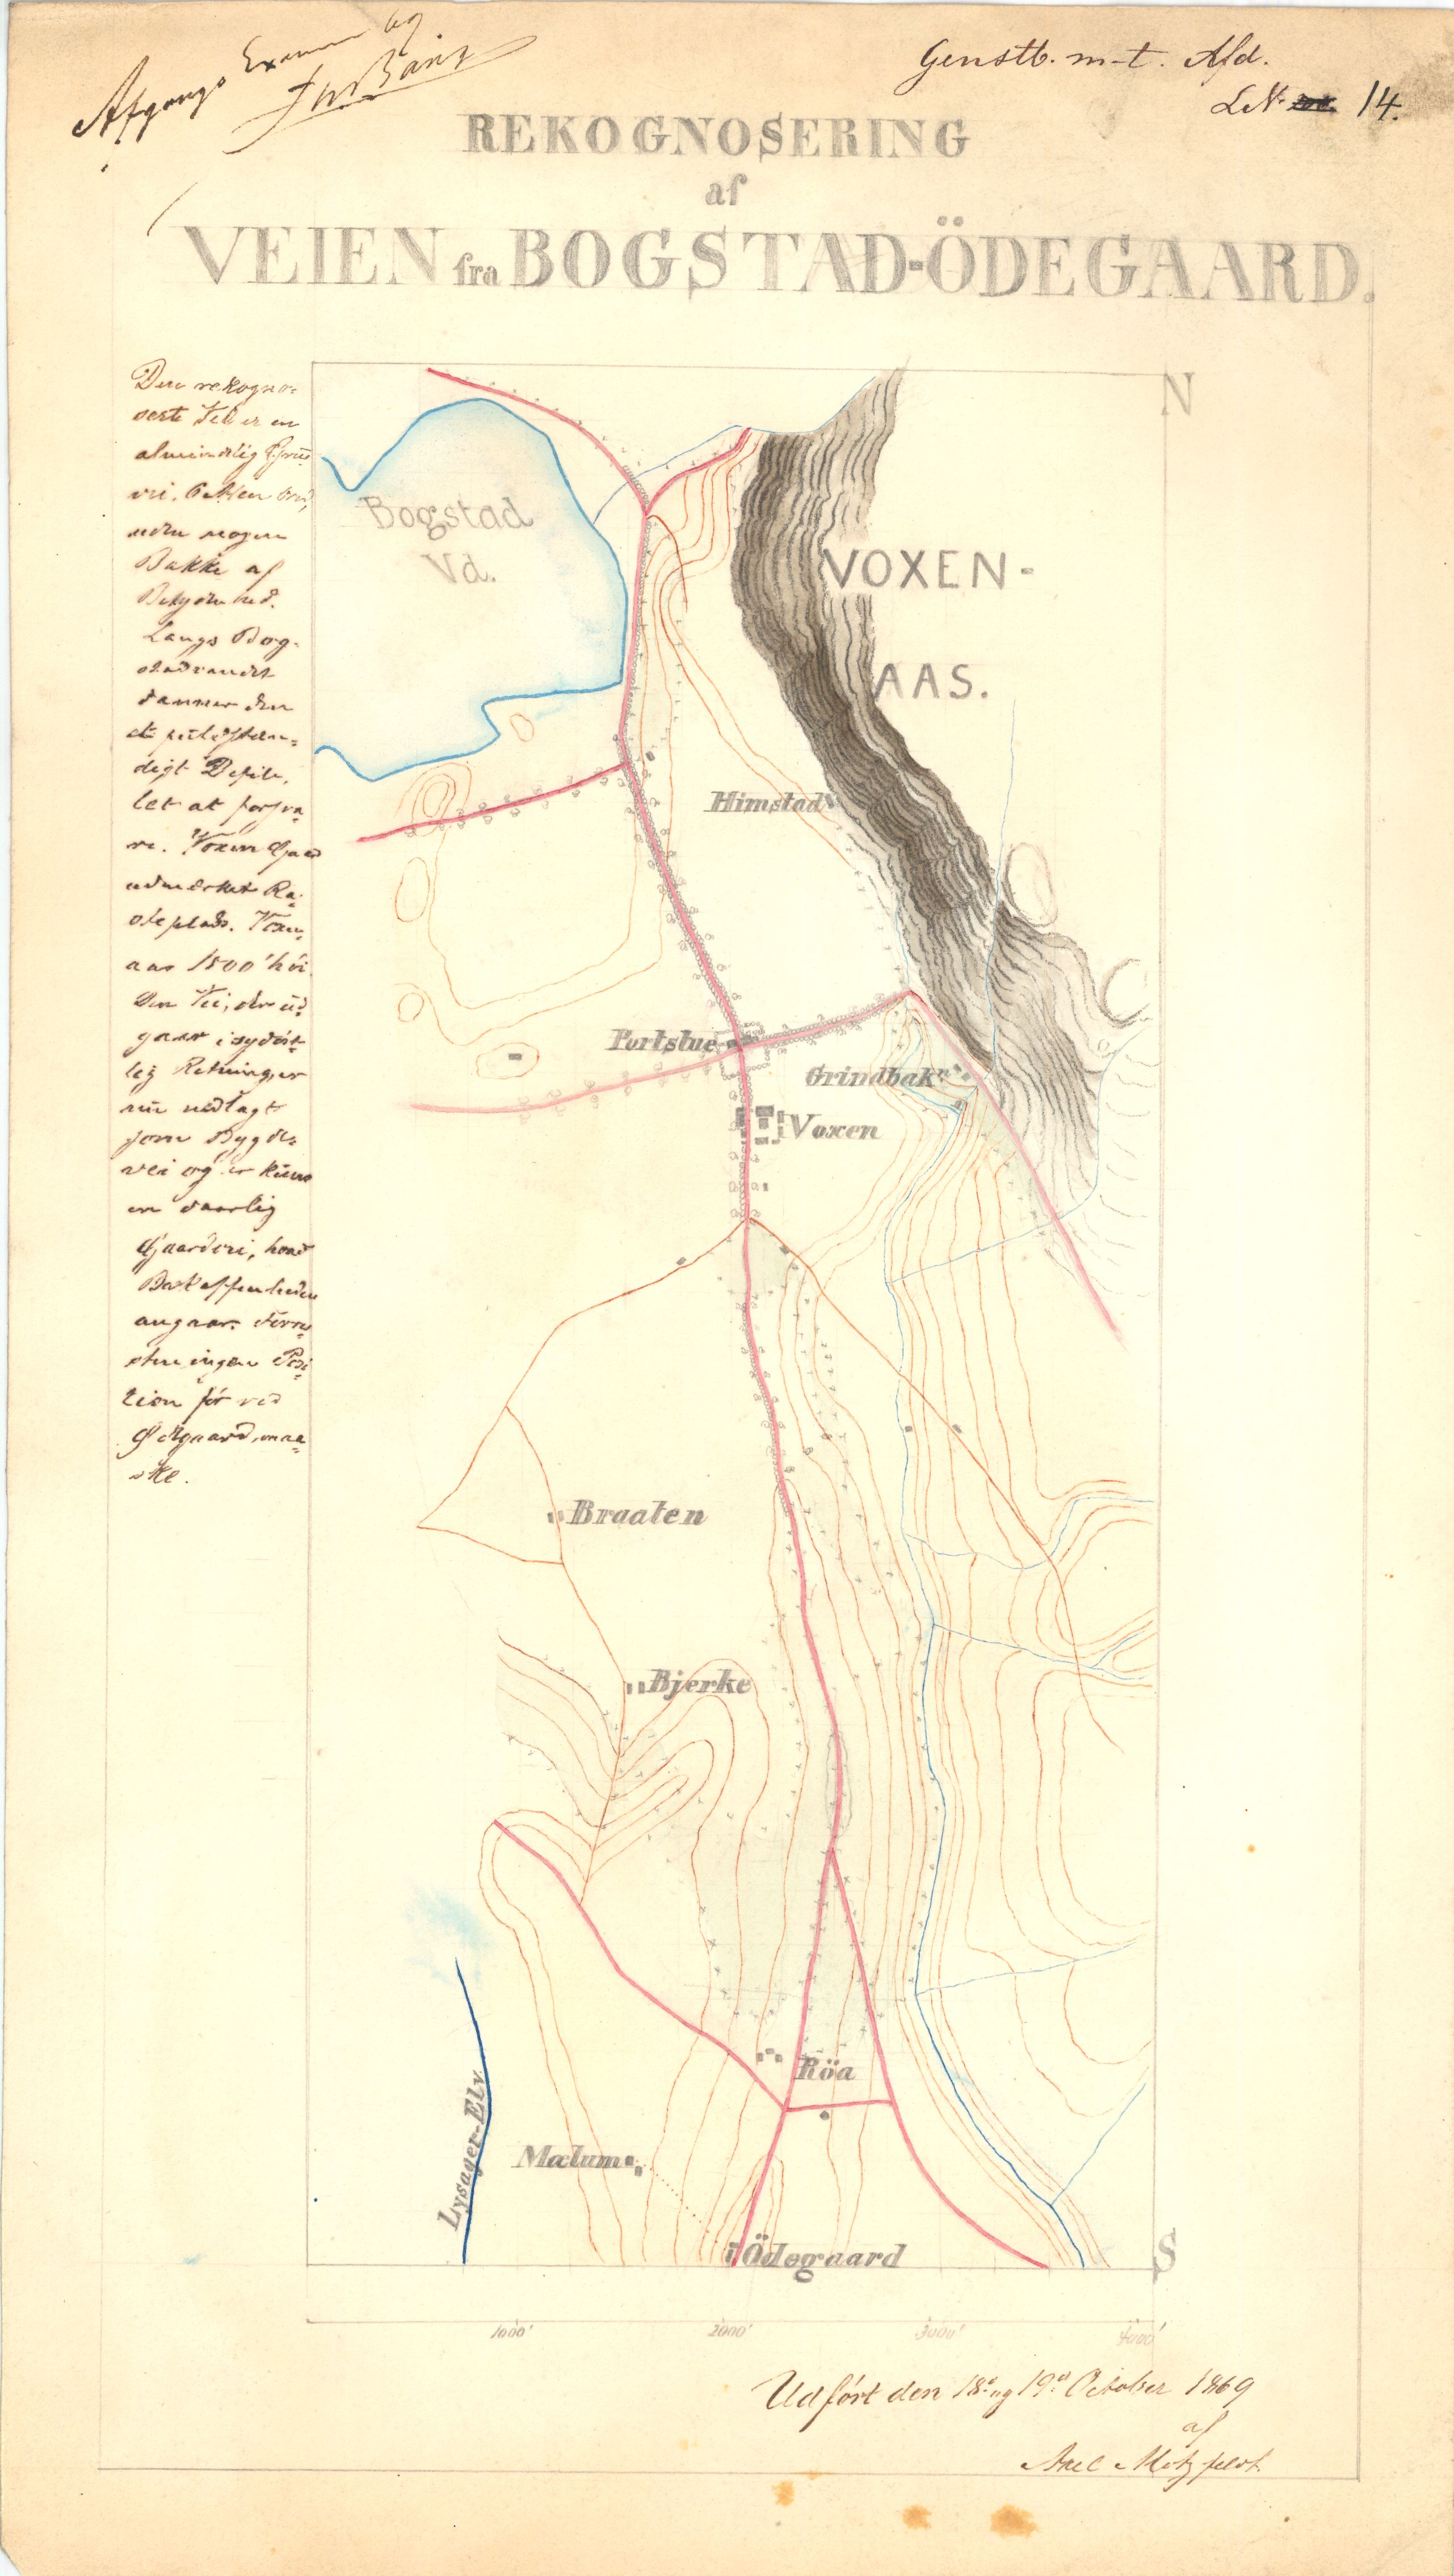 Afgangs Examen
Genstb. m-t. Afd.
LN. 14.
REKOGNOSERING
af
VEIEN fra BOGSTAD-ÖDEGAARD.
Den rekogno-
en
almindelig
vei,
uden nogen
Bakke af
Betydenhed.
Langs Bog-
stadvandet
danner den
et
digt Defile,
let at forsva-
re. Voxen Gaard
udmærket Ra-
steplads. Voxen-
aas 1500' höi.
Den Vei, der ud-
gaar i sydöst-
lig Retning, er
nu nedlagt
som Bygde-
vei og er kun
en daarlig
Gaardvei, hvad
Beskaffenheden
angaar.
ingen Posi-
tion för ved
Ödegaard, maa-
ske.
N
Bogstad
Vd.
VOXEN-
AAS.
Himstad
Portstue
Grindbak
Voxen
Braaten
Bjerke
Röa
Lysager-Elv.
Mælum
Ödegaard
S
1000' 2000' 3000' 4000'
Udfört den 18de og 19de October 1869
af
Axel Motzfeldt.